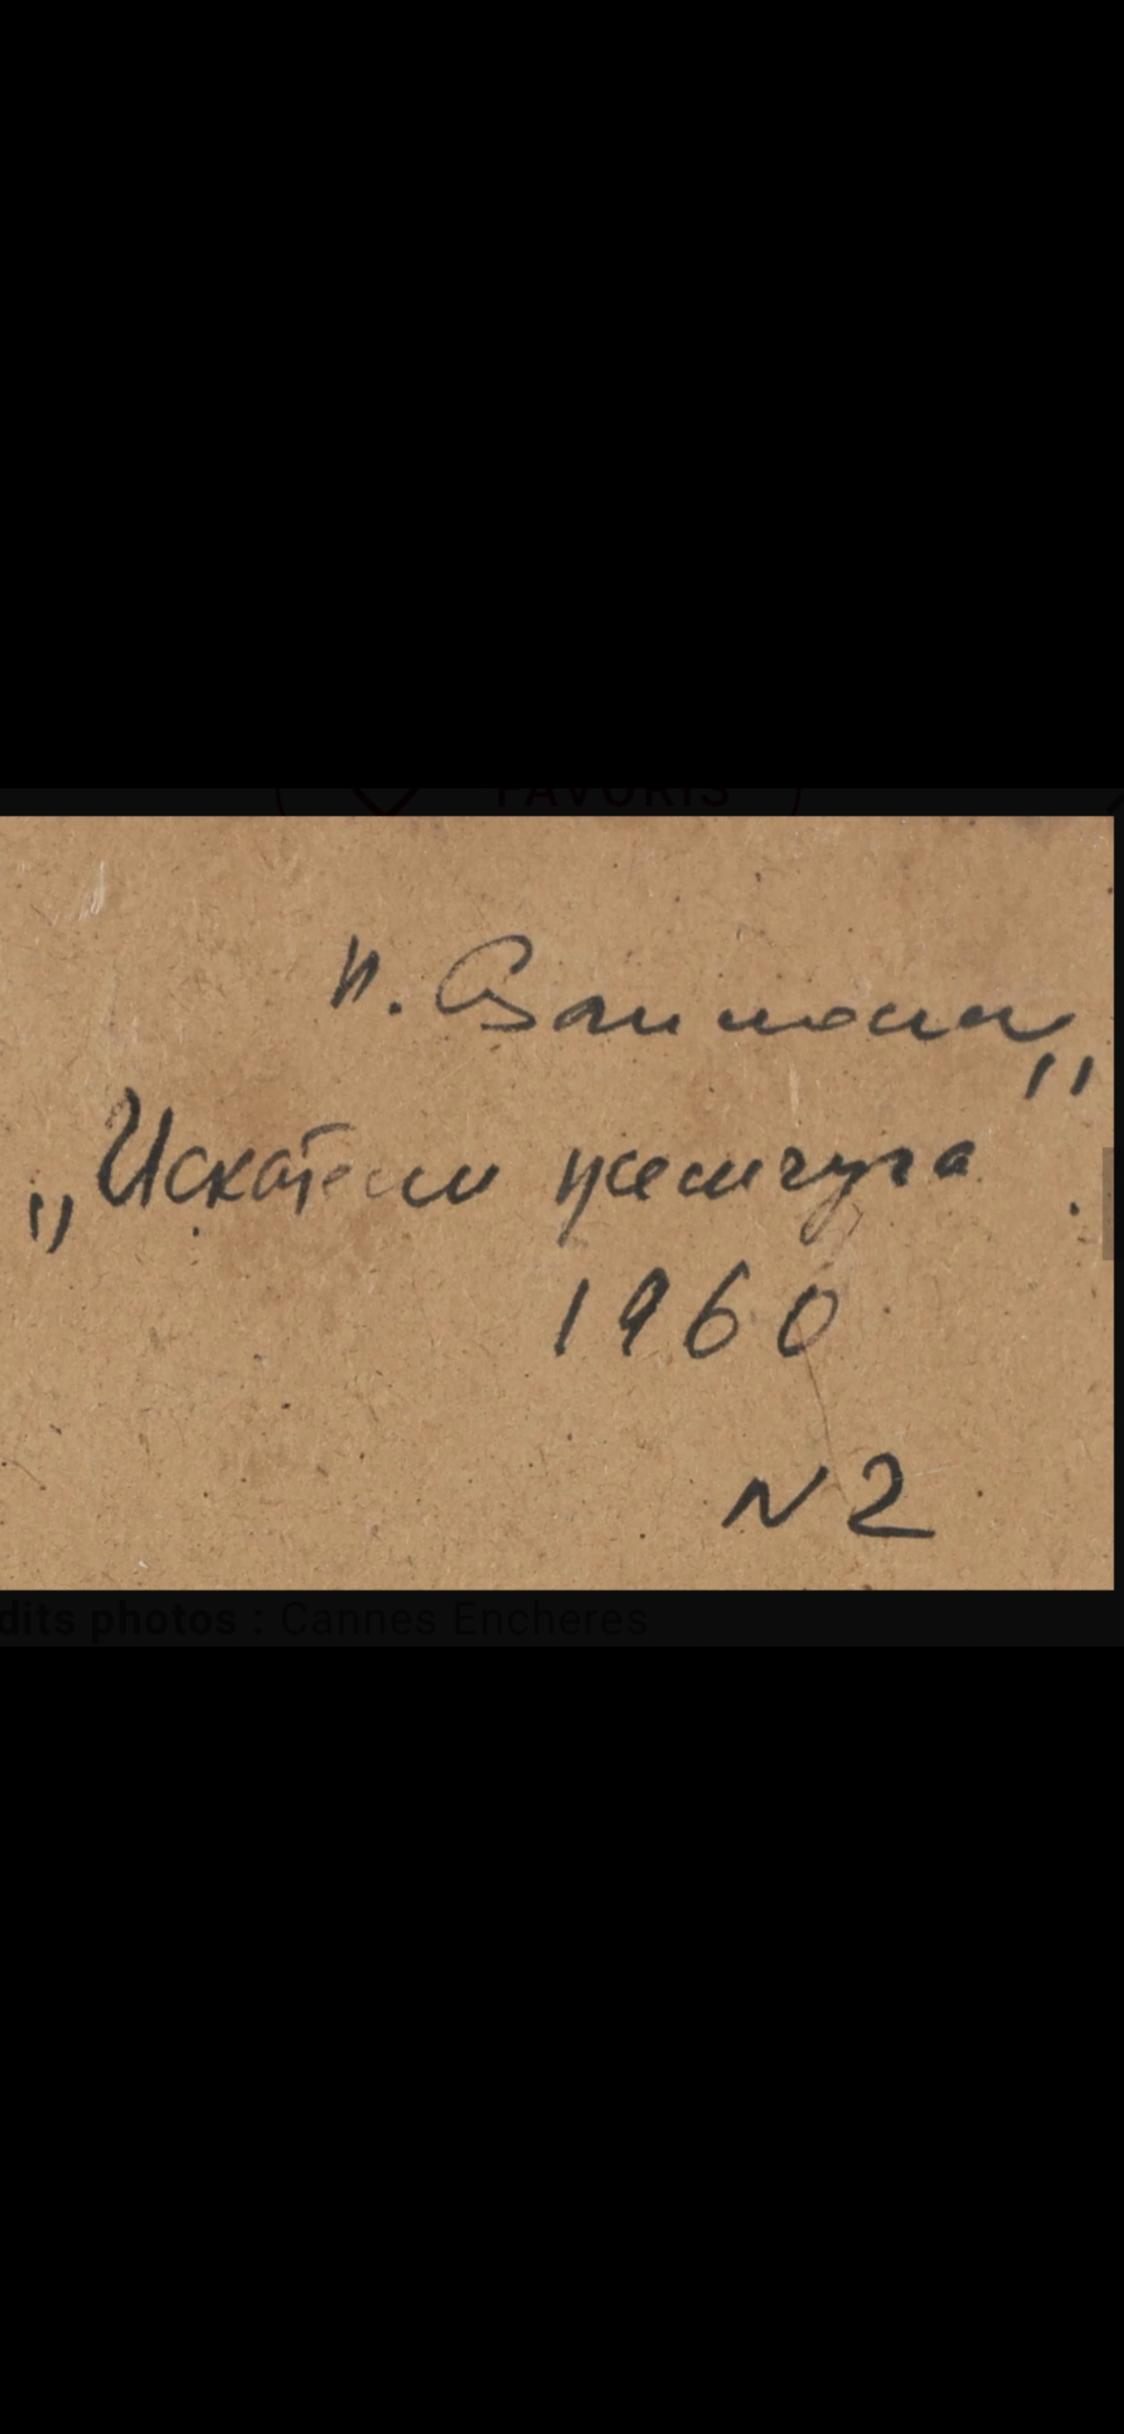 FAVORIS
И.
„Искатели жемчуга"
1960
N2
dits photos : Cannes Encheres